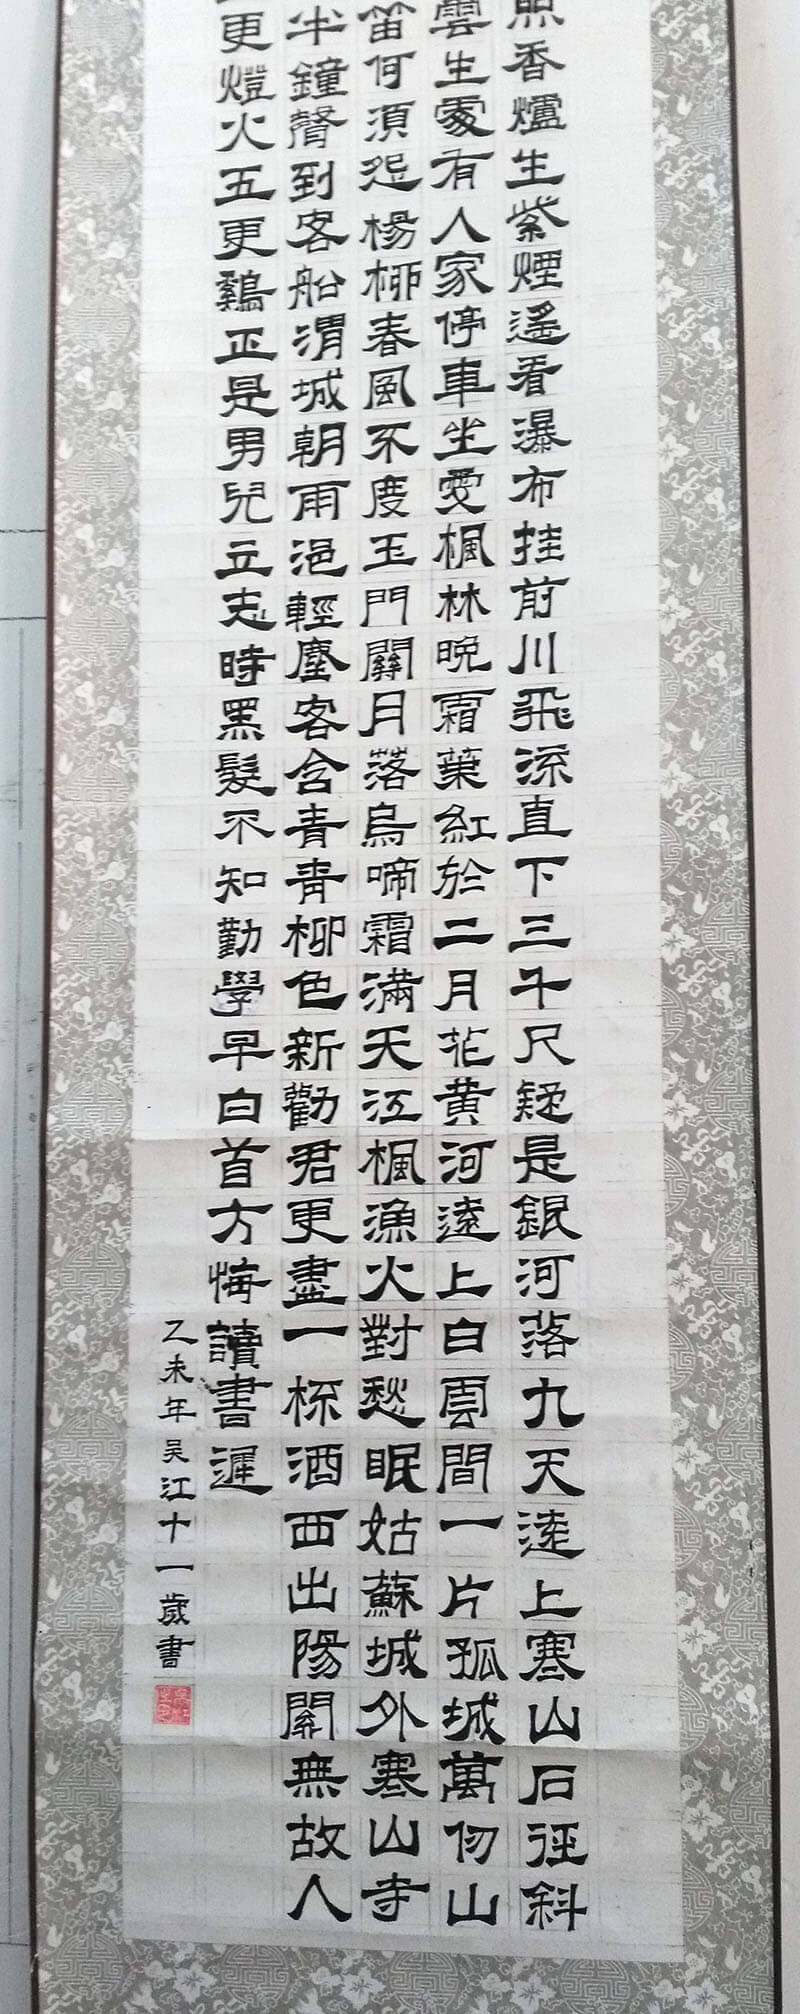 照香爐生紫煙遙看瀑布挂前川飛流直下三千尺疑是銀河落九天遠上寒山石徑斜
雲生處有人家停車坐愛楓林晚霜葉紅於二月花黃河遠上白雲間一片孤城萬仞山
笛何須怨楊柳春風不度玉門關月落烏啼霜滿天江楓漁火對愁眠姑蘇城外寒山寺
半鐘聲到客船渭城朝雨浥輕塵客舍青青柳色新勸君更盡一杯酒西出陽關無故人
更燈火五更鷄正是男兒立志時黑髮不知勤學早白首方悔讀書遲
乙未年吴江十一歲書